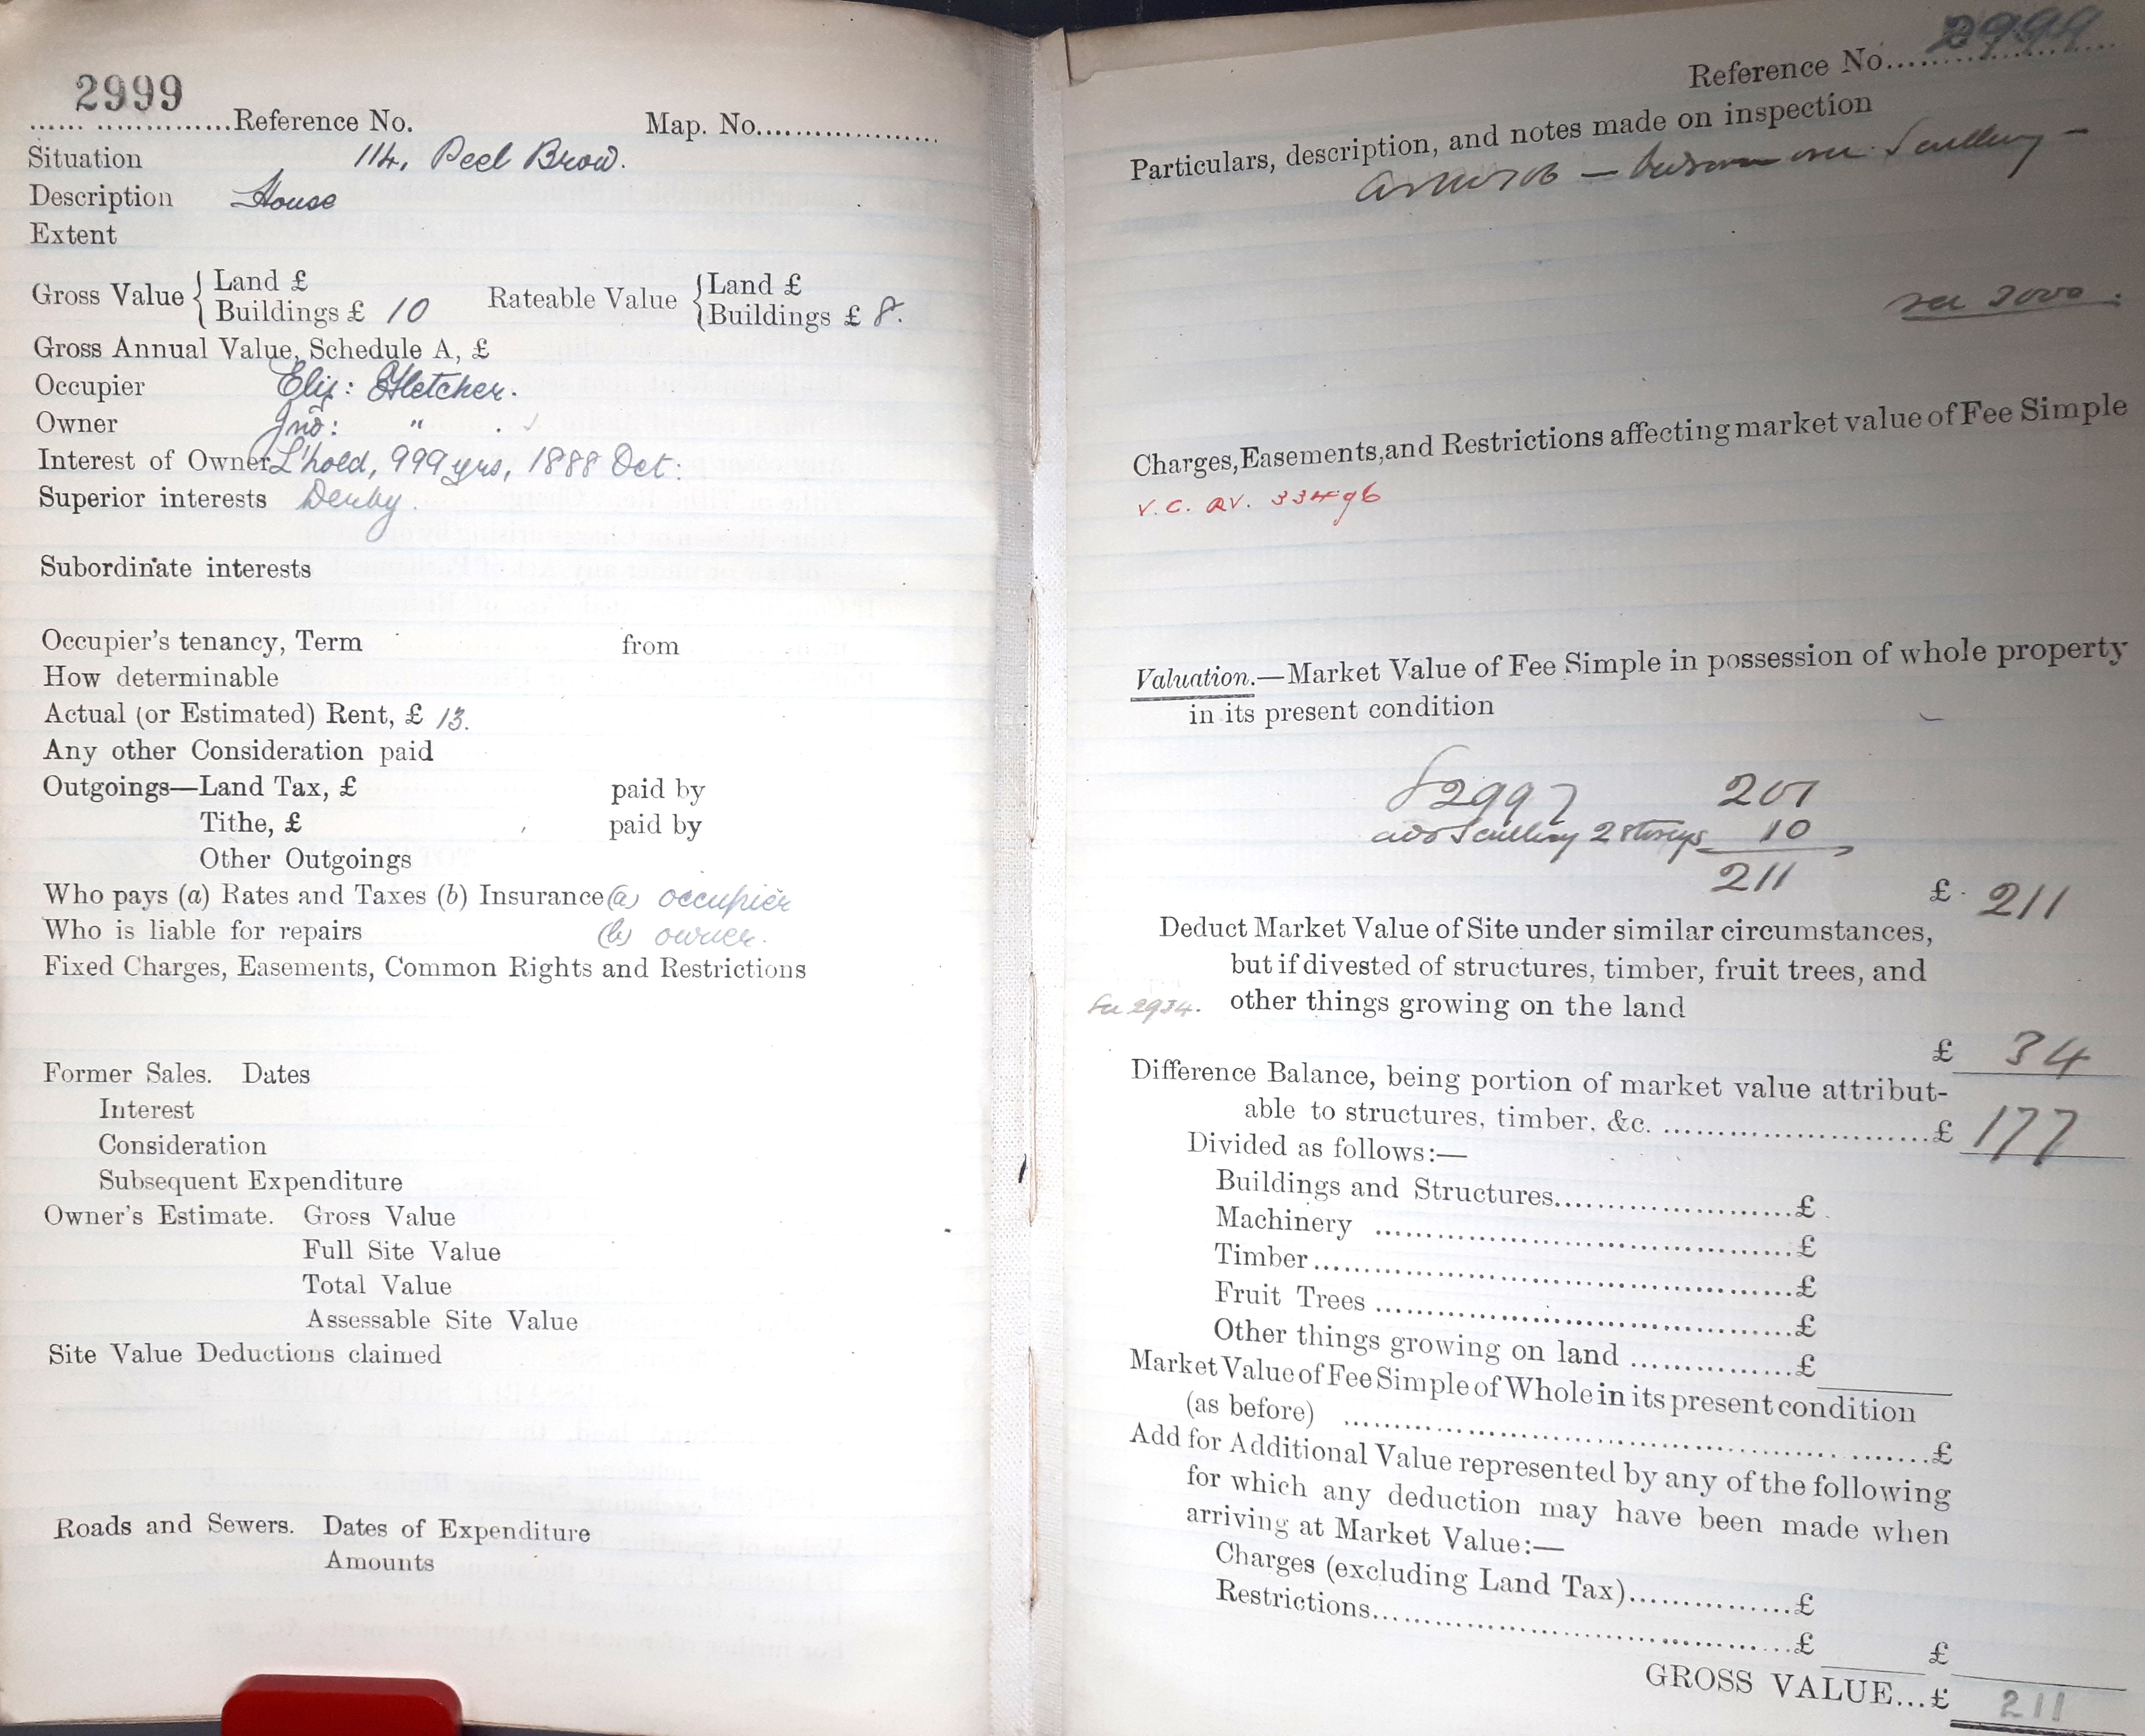 2999
Reference No. Map. No.
Situation 114, Peel Brow.
Description House
Extent
Gross Value { Land £ Rateable Value { Land £
Buildings £ 10 Buildings £ 8.
Gross Annual Value, Schedule A, £
Occupier Eliz: Fletcher.
Owner Jno: "
Interest of Owner L'hold, 999 yrs, 1888 Oct:
Superior interests Derby.
Subordinate interests
Occupier's tenancy, Term from
How determinable
Actual (or Estimated) Rent, £ 13.
Any other Consideration paid
Outgoings—Land Tax, £ paid by
Tithe, £ paid by
Other Outgoings
Who pays (a) Rates and Taxes (b) Insurance (a) occupier
Who is liable for repairs (b) owner.
Fixed Charges, Easements, Common Rights and Restrictions
Former Sales. Dates
Interest
Consideration
Subsequent Expenditure
Owner's Estimate. Gross Value
Full Site Value
Total Value
Assessable Site Value
Site Value Deductions claimed
Roads and Sewers. Dates of Expenditure
Amounts
Reference No. 2999
Particulars, description, and notes made on inspection
— bedroom over Scullery —
see 3000.
Charges, Easements, and Restrictions affecting market value of Fee Simple
V.C. AV. 33496
Valuation.—Market Value of Fee Simple in possession of whole property
in its present condition
2997 201
add Scullery 2 storeys 10
211
£ 211
Deduct Market Value of Site under similar circumstances,
but if divested of structures, timber, fruit trees, and
See 2934. other things growing on the land
£ 34
Difference Balance, being portion of market value attribut-
able to structures, timber, &c. £ 177
Divided as follows:—
Buildings and Structures £
Machinery £
Timber £
Fruit Trees £
Other things growing on land £
Market Value of Fee Simple of Whole in its present condition
(as before) £
Add for Additional Value represented by any of the following
for which any deduction may have been made when
arriving at Market Value:—
Charges (excluding Land Tax) £
Restrictions £ £
GROSS VALUE...£ 211